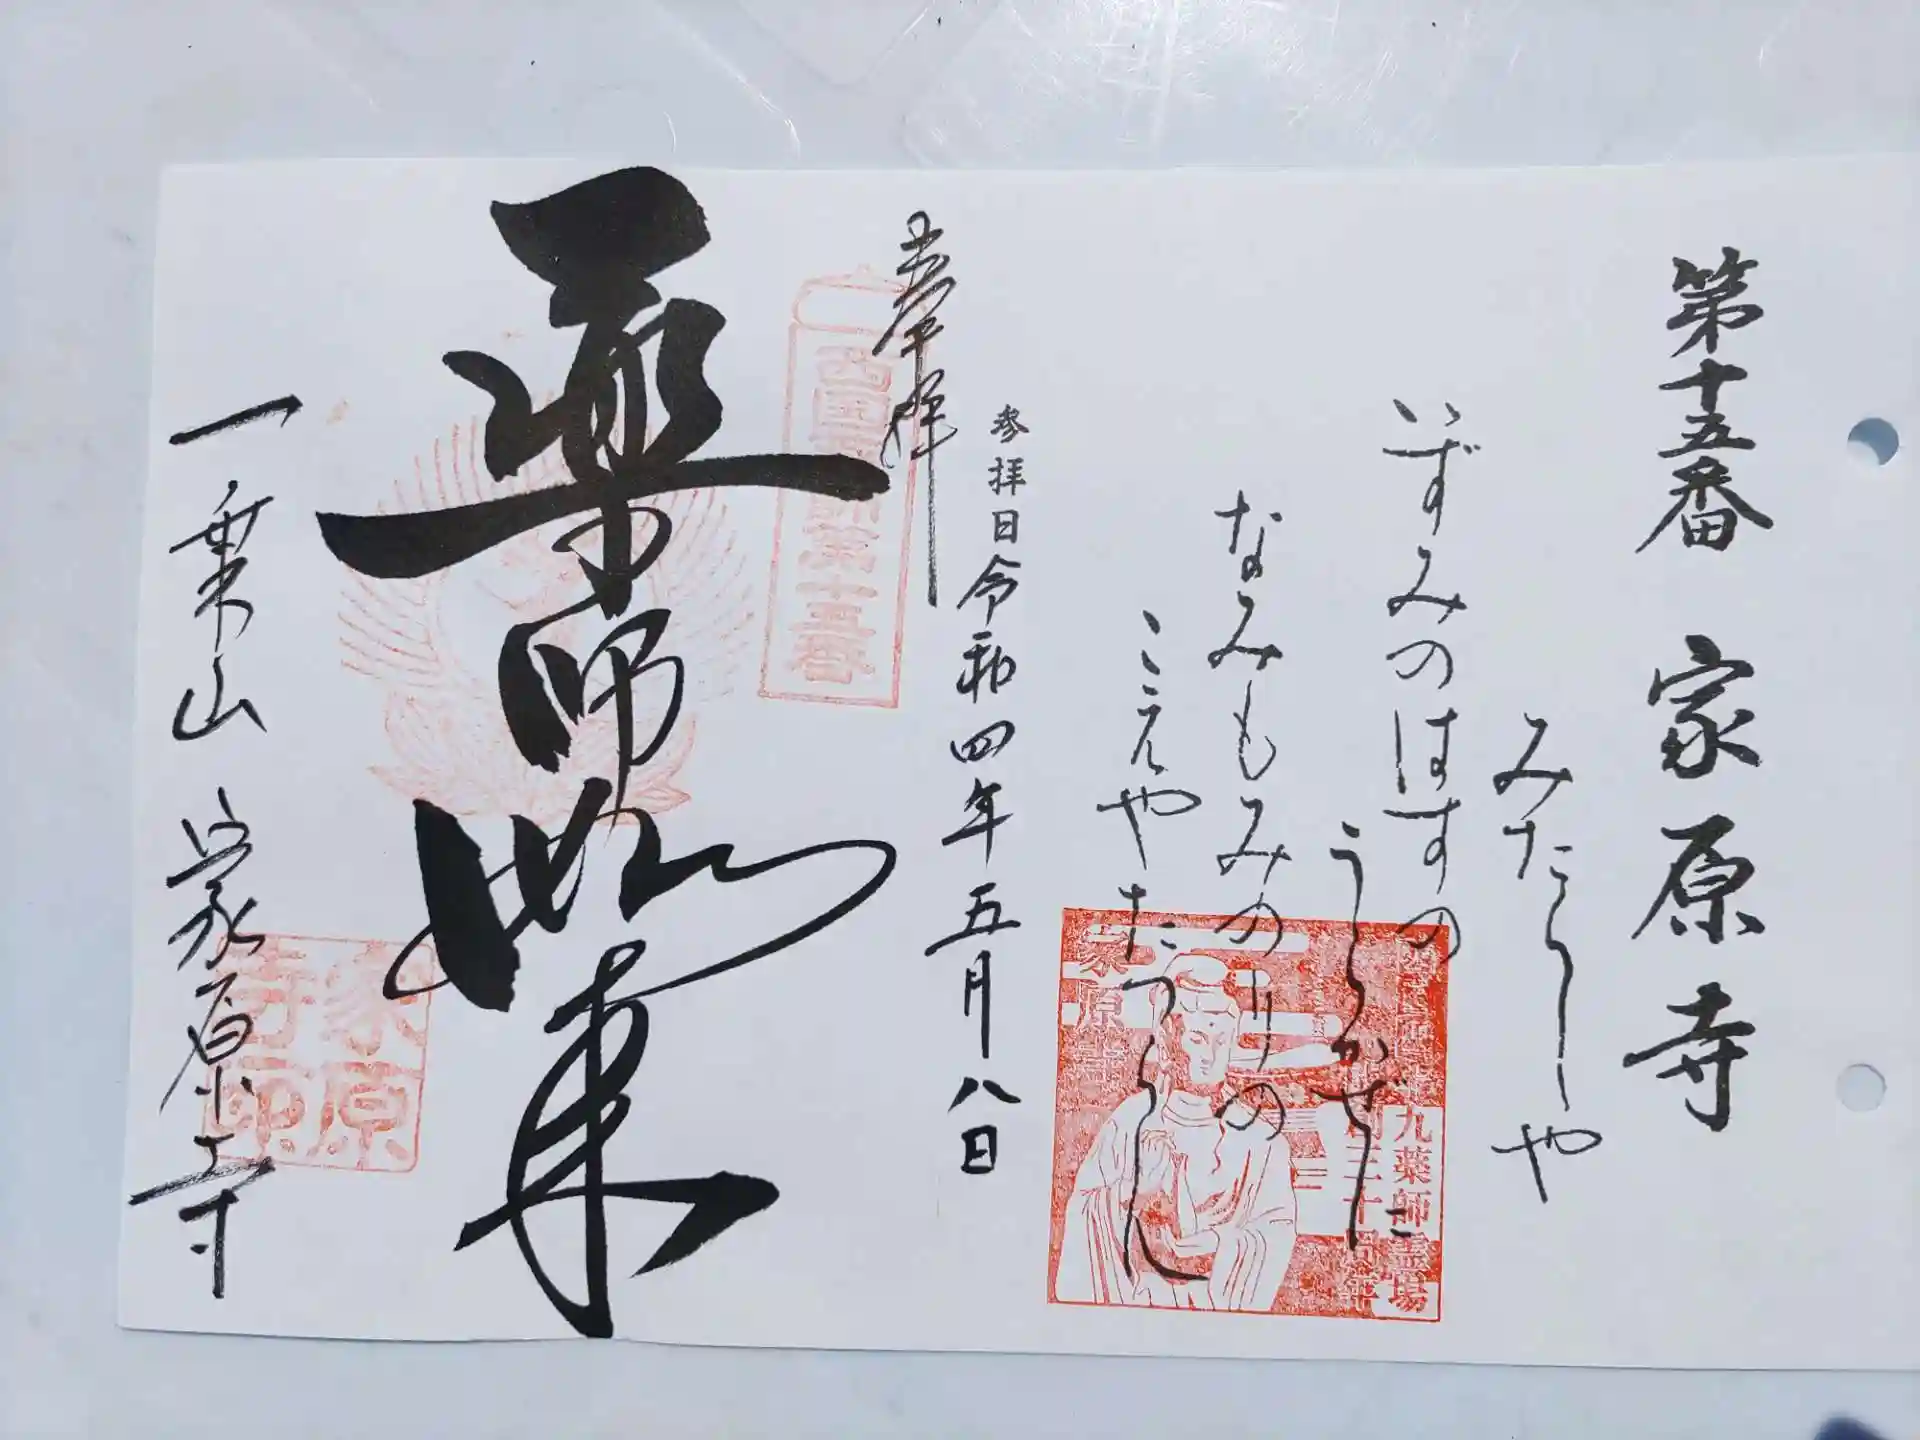 第十五番 家原寺
みたらしや
いずみのはすの
うらかぜに
なみもみのりの
こえやたつらん
参拝日令和四年五月八日
奉拝
西国薬師第十五番
薬師如来
一乗山 家原寺
家原寺印
家原寺
西国四十九薬師霊場
創三十周年